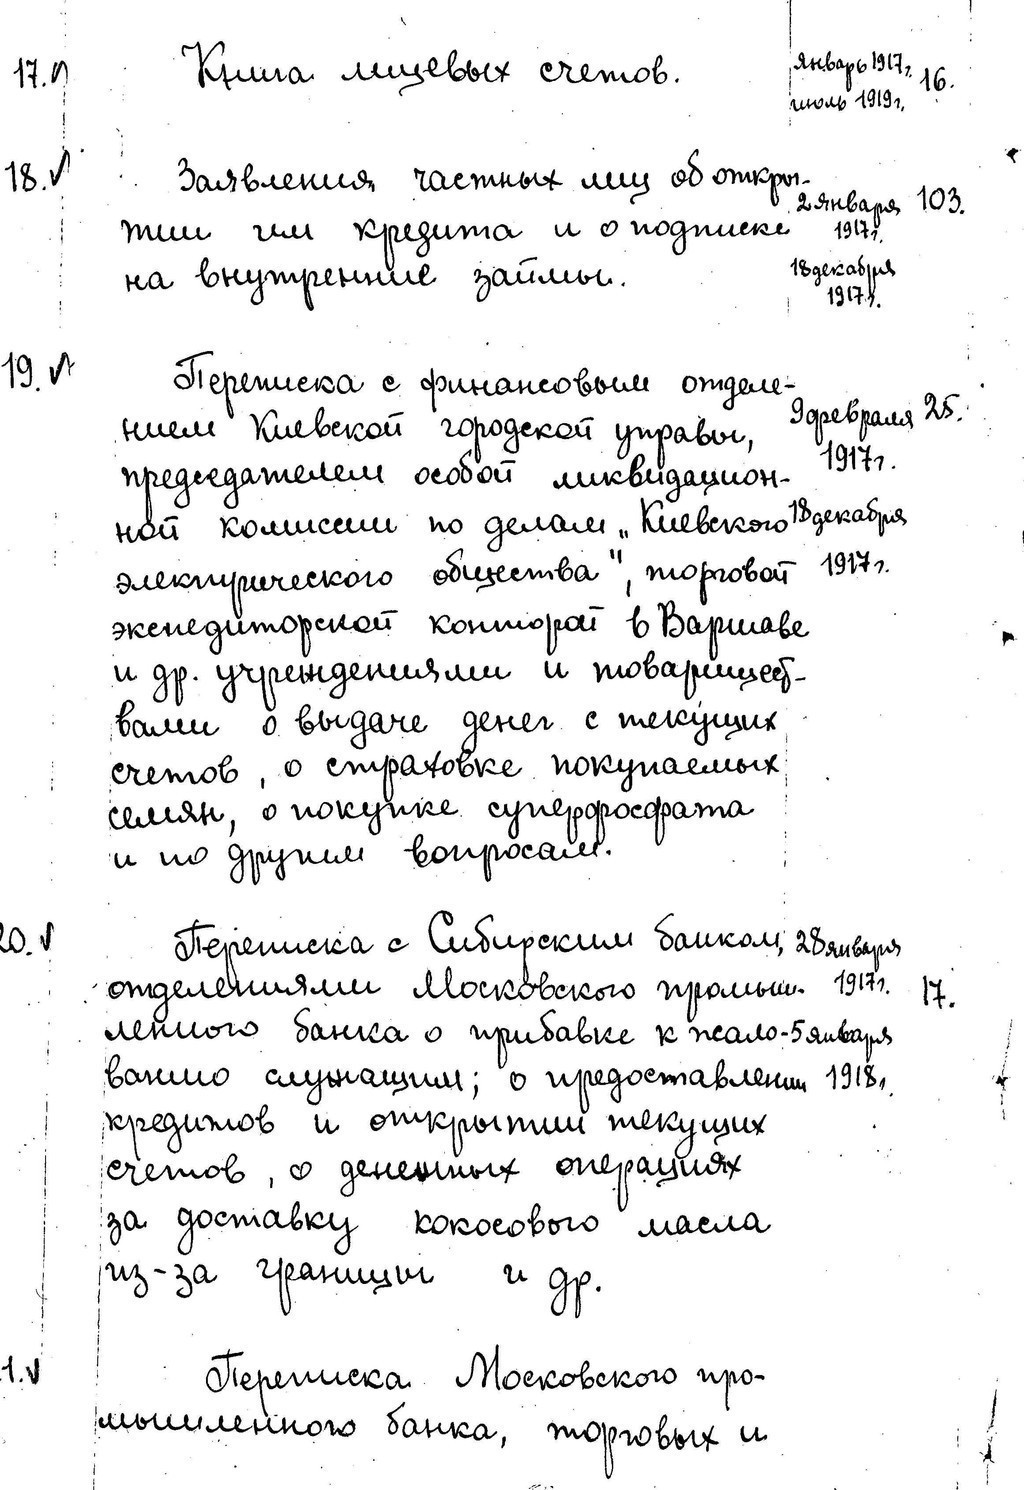 17. Книга лицевых счетов. январь 1917г. 16.
июль 1919г.
18. Заявления частных лиц об откры-
2 января 103.
тии им кредита и о подписке 1917г.
на внутренние займы. 18 декабря
1917г.
19. Переписка с финансовым отделе-
нием Киевской городской управы, 9 февраля 25.
председателем особой ликвидацион- 1917г.
ной комиссии по делам „Киевского 18 декабря
электрического общества", торговой 1917г.
экспедиторской конторой в Варшаве
и др. учреждениями и товарищест-
вами о выдаче денег с текущих
счетов, о страховке покупаемых
семян, о покупке суперфосфата
и по другим вопросам.
20. Переписка с Сибирским банком, 28 января
отделениями Московского промыш- 1917г. 17.
ленного банка о прибавке к жало- 5 января
ванию служащим; о предоставлении 1918г.
кредитов и открытии текущих
счетов, о денежных операциях
за доставку кокосового масла
из-за границы и др.
1. Переписка Московского про-
мышленного банка, торговых и